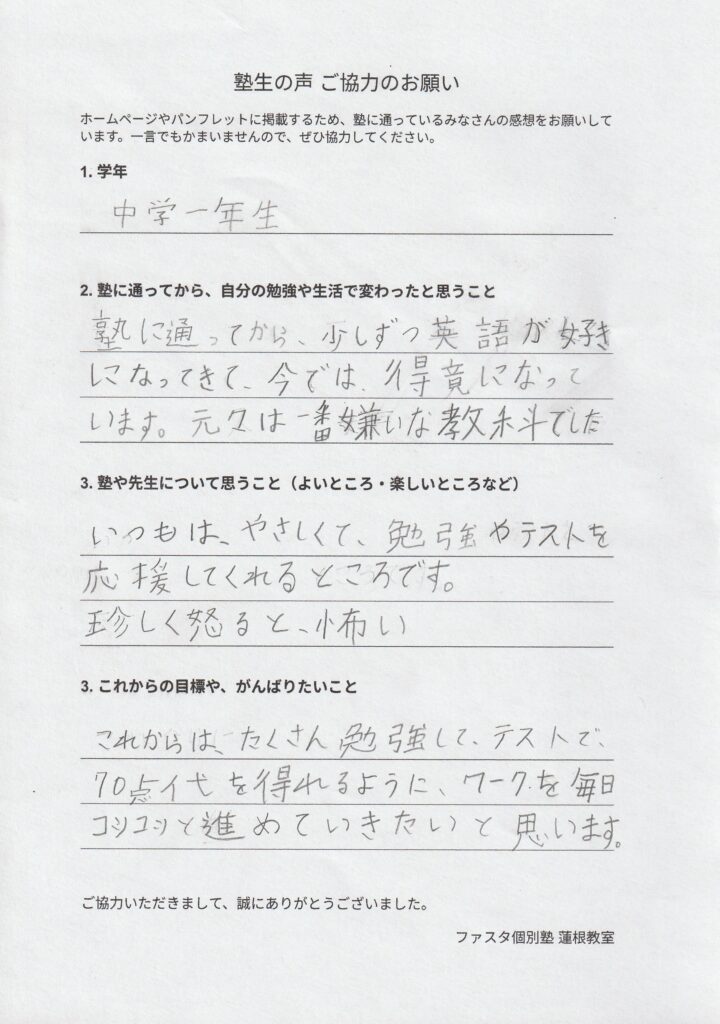 塾生の声 ご協力のお願い
ホームページやパンフレットに掲載するため、塾に通っているみなさんの感想をお願いして
います。一言でもかまいませんので、ぜひ協力してください。
1. 学年
中学一年生
2. 塾に通ってから、自分の勉強や生活で変わったと思うこと
塾に通ってから、少しずつ英語が好き
になってきて、今では、得意になって
います。元々は一番嫌いな教科でした
3. 塾や先生について思うこと（よいところ・楽しいところなど）
いつもは、やさしくて、勉強やテストを
応援してくれるところです。
珍しく怒ると、怖い
3. これからの目標や、がんばりたいこと
これからは、たくさん勉強して、テストで、
70点代を得れるように、ワークを毎日
コツコツと進めていきたいと思います。
ご協力いただきまして、誠にありがとうございました。
ファスタ個別塾 蓮根教室